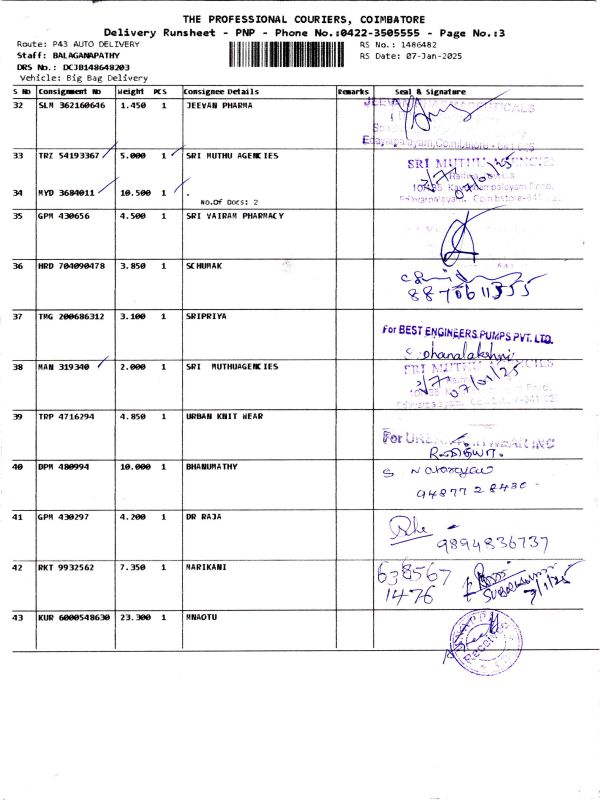 THE PROFESSIONAL COURIERS, COIMBATORE
Delivery Runsheet - PNP - Phone No.:0422-3505555 - Page No.:3
Route: P43 AUTO DELIVERY RS No.: 1486482
Staff: BALAGANAPATHY RS Date: 07-Jan-2025
DRS No.: DCJB148648203
Vehicle: Big Bag Delivery
S No Consignment No Weight PCS Consignee Details Remarks Seal & Signature
32 SLM 362160646 1.450 1 JEEVAN PHARMA
33 TRZ 54193367 5.000 1 SRI MUTHU AGENCIES
SRI MUTHU AGENCIES
07/01/25
34 MYD 3684011 10.500 1 .
No.Of Docs: 2
35 GPM 430656 4.500 1 SRI VAIRAM PHARMACY
36 HRD 704090478 3.850 1 SCHUMAK
8870611355
37 TMG 200686312 3.100 1 SRIPRIYA
For BEST ENGINEERS PUMPS PVT. LTD.
38 MAN 319340 2.000 1 SRI MUTHUAGENCIES
SRI MUTHU AGENCIES
07/01/25
39 TRP 4716294 4.850 1 URBAN KNIT WEAR
For URBAN KNIT WEAR INC
40 DPM 480994 10.000 1 BHANUMATHY
S Narayan
94877 28480
41 GPM 430297 4.200 1 DR RAJA
9894836737
42 RKT 9932562 7.350 1 MARIKANI
638567
1476
7/1/25
43 KUR 6000548630 23.300 1 MNAOTU